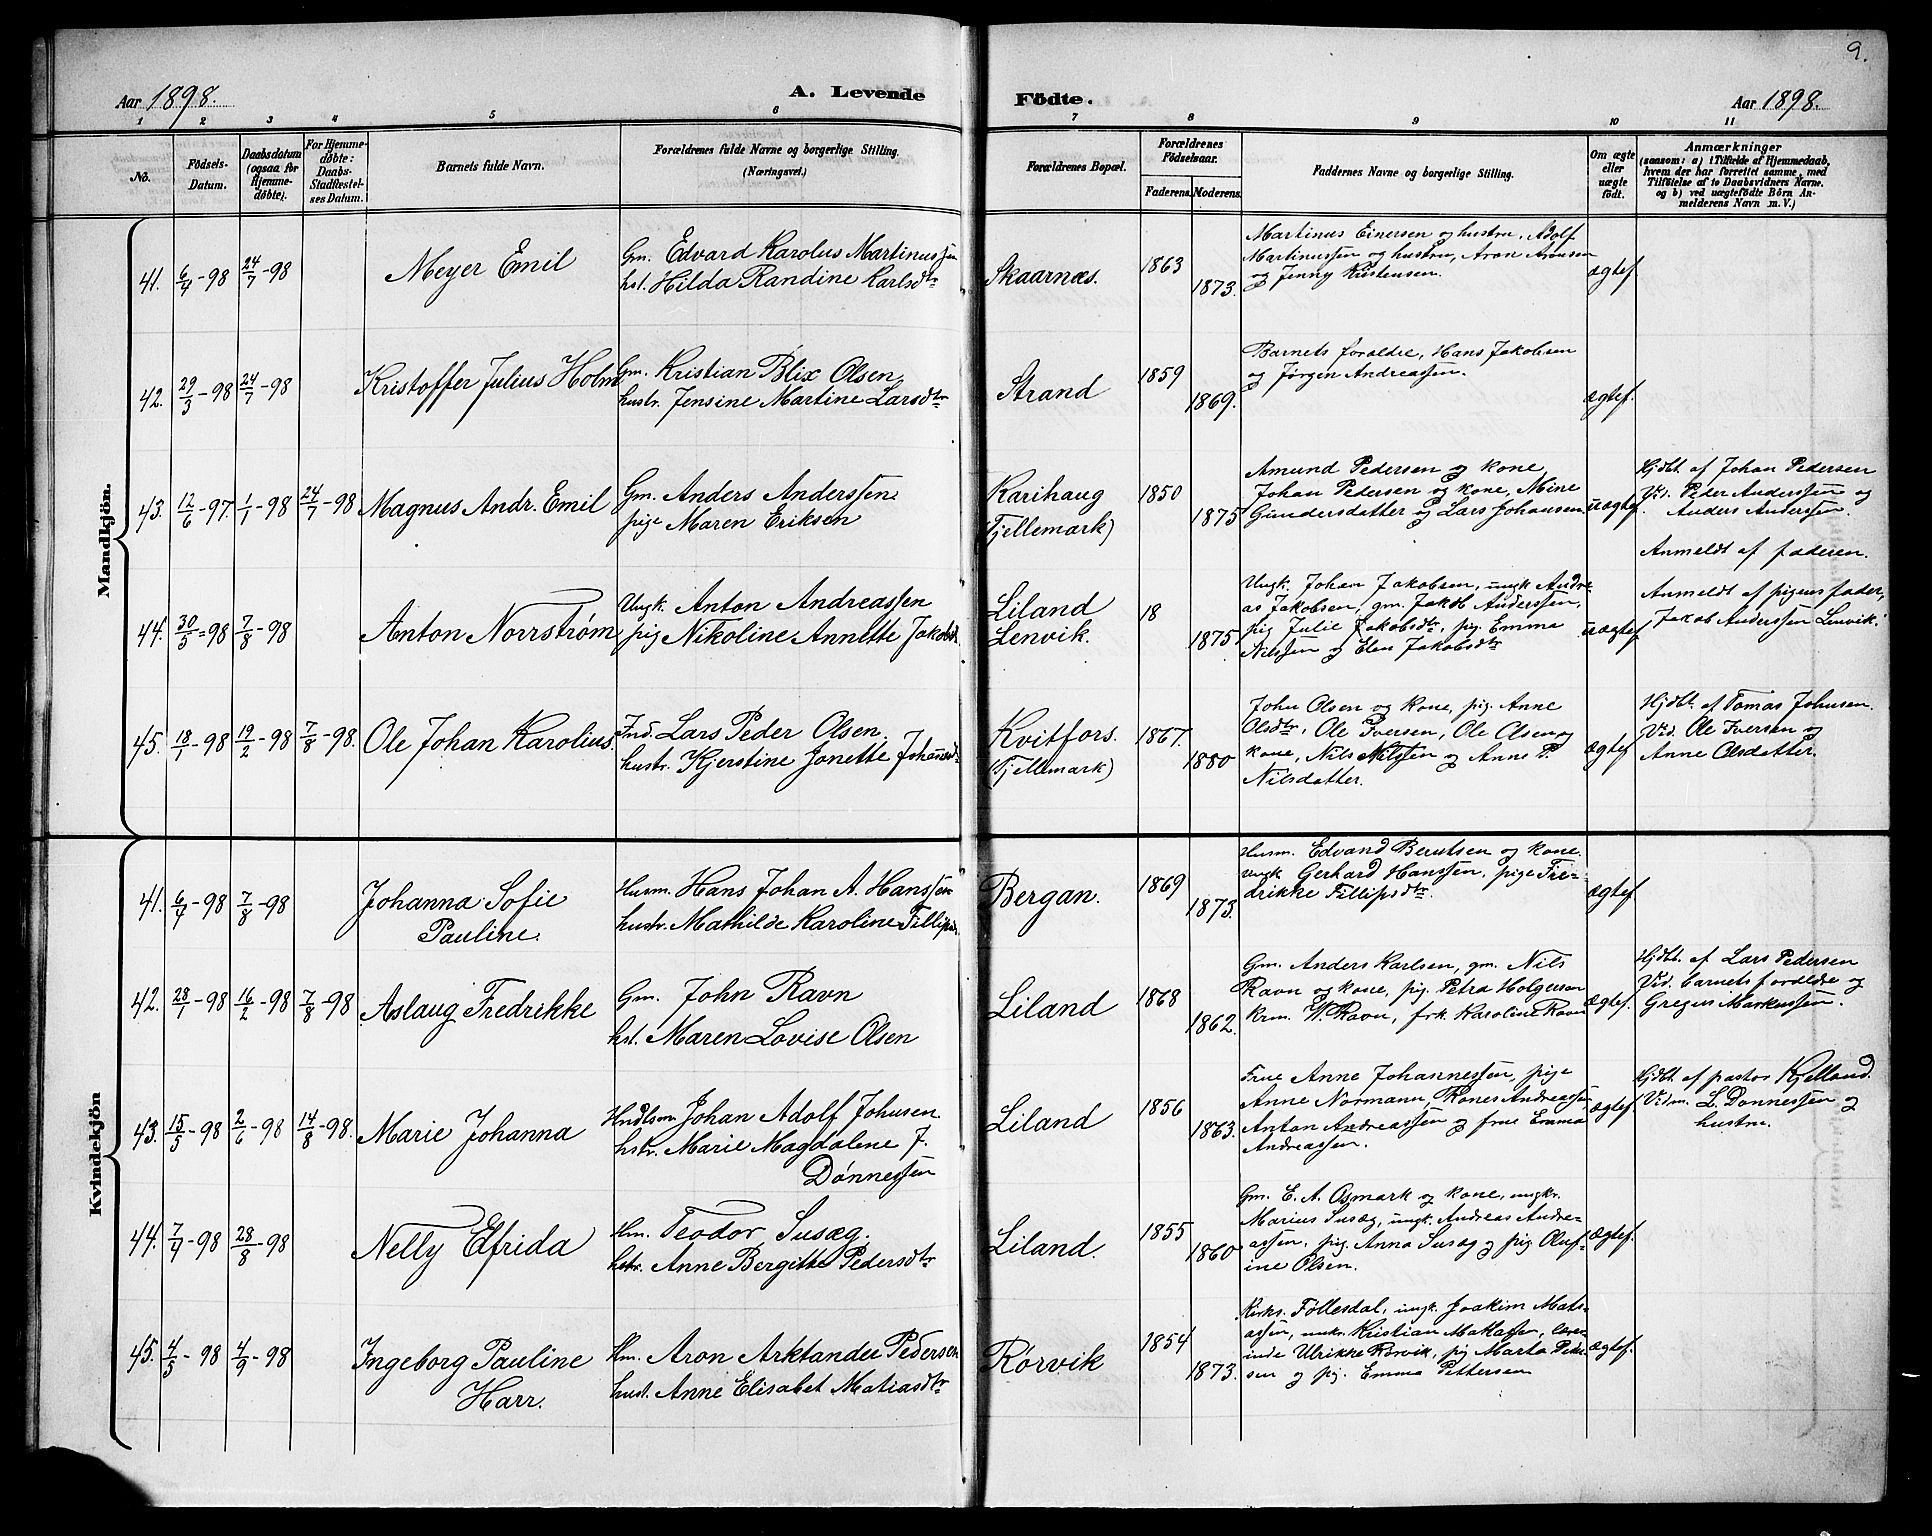 9.
Aar 1898.
A. Levende Födte.
Aar 1898.
1 2 3 4 5 6 7 8 9 10 11
No.
Födsels-
Datum.
Daabsdatum
(ogsaa for
Hjemme-
døbte).
For Hjemme-
døbte:
Daabs-
Stadfæstel-
ses Datum.
Barnets fulde Navn.
Forældrenes fulde Navne og borgerlige Stilling.
(Næringsvei.)
Forældrenes Bopæl.
Forældrenes
Födselsaar.
Faderens. Moderens.
Faddernes Navne og borgerlige Stilling.
Om ægte
eller
uægte
födt.
Anmærkninger
(saasom: a) i Tilfælde af Hjemmedaab,
hvem der har forrettet samme, med
Tilföielse af to Daabsvidners Navne,
og b) ved uægtefödte Börn An-
melderens Navn m. V.)
Mandkjön.
41. 6/4-98 24/7-98
Meyer Emil
Gm. Edvard Karolus Martinussen
hst. Hilda Randine Karlsdtr
Skaarnæs.
1863
1873.
Martinus Einersen og hustru, Adolf
Martinussen og hustru, Aron Aronsen
og Jenny Kristensen.
ægtef.
42. 29/3-98 24/7-98
Kristoffer Julius Holm
Gm. Kristian Blix Olsen
hustr. Jensine Martine Larsdtr
Strand
1859
1869.
Barnets forældre, Hans Jakobsen
og Jørgen Andreassen.
ægtef.
43. 12/6-97. 1/1-98 24/7-98
Magnus Andr. Emil
Gm. Anders Anderssen
pige Maren Eriksen
Karihaug
(Fjellemark)
1850
1875
Amund Pedersen og kone,
Johan Pedersen og kone, Mine
Gundersdatter og Lars Johansen
uægtef.
Hjdbt. af Johan Pedersen
Vid. Peder Anderssen og
Anders Anderssen.
Anmeldt af faderen.
44. 30/5-98 7/8-98
Anton Norrstrøm
Ungk. Anton Andreassen
pig Nikoline Annette Jakobsd.
Liland
Lenvik.
18
1875
Ungk. Johan Jakobsen, ungk Andre-
as Jakobsen, gm. Jakob Anderssen,
pig Julie Jakobsdtr, pg. Emma
Nilssen og Elen Jakobsdtr
uægtef
Anmeldt af pigens fader,
Jakob Anderssen Lenvik.
45. 18/1-98 19/2-98 7/8-98.
Ole Johan Karolius.
Ind. Lars Peder Olsen.
hustr. Kjerstine Jonette Johansd.
Kvitfors.
(Fjellemark)
1867.
1880
John Olsen og kone, pig. Anne
Olsdtr, Ole Iversen, Ole Olsen og
kone, Nils Nilssen og Anne P.
Nilsdatter.
ægtef
Hjdbt. af Tomas Johnsen.
Vid. Ole Iversen og
Anne Olsdatter.
Kvindekjön
41. 6/4-98 7/8-98
Johanna Sofie
Pauline.
Husm. Hans Johan A. Hanssen
hustr. Mathilde Karoline Fillipsd.
Bergan.
1869
1873.
Husm. Edvand Berntsen og kone.
ungk Gerhard Hanssen, pige Fre-
drikke Fillipsdtr.
ægtef.
42. 28/1-98 16/2-98 7/8-98
Aslaug Fredrikke
Gm. John Ravn
hst. Maren Lovise Olsen
Liland
1868
1862.
Gm. Anders Karlsen, gm. Nils
Ravn og kone, pig. Petra Holgersen
krm. W. Ravn, frk. Karoline Ravn
ægtef.
Hjdbt. af Lars Pedersen
Vid. barnets forældre og
Gregus Markussen.
43. 15/5-98 2/6-98 14/8-98.
Marie Johanna
Hndlsm. Johan Adolf Johnsen
hstr. Marie Magdalene J.
Dønnessen
Liland
1856
1863.
Frue Anne Johannessen, pige
Anne Normann, Rones Andreassen
Anton Andreassen og frue Emma
Andreassen.
ægtef.
Hjdbt. af pastor Kjelland.
Vidn. L. Dønnessen og
hustru.
44. 7/4-98 28/8-98
Nelly Elfrida
Hm. Teodor Susæg.
hstr. Anne Bergitte Pedersdtr
Liland.
1855
1860
Gm. E. A. Osmark og kone, ungkr.
Marius Susæg, ungk. Andreas Andre-
assen, pig. Anna Susæg og pig. Oluf-
ine Olsen.
ægtef.
45. 4/5-98 4/9-98
Ingeborg Pauline
Harr.
Hm. Aron Arktander Pedersen
hust. Anne Elisabet Matiasdtr
Rørvik
1854
1873.
Kirks. Føllesdal, ungk. Joakim Mats-
assen, ungkr. Kristian Matiassen, lærer-
inde Ulrikke Rørvik, pig Marta Peder-
sen og pig. Emma Pettersen
ægtef.